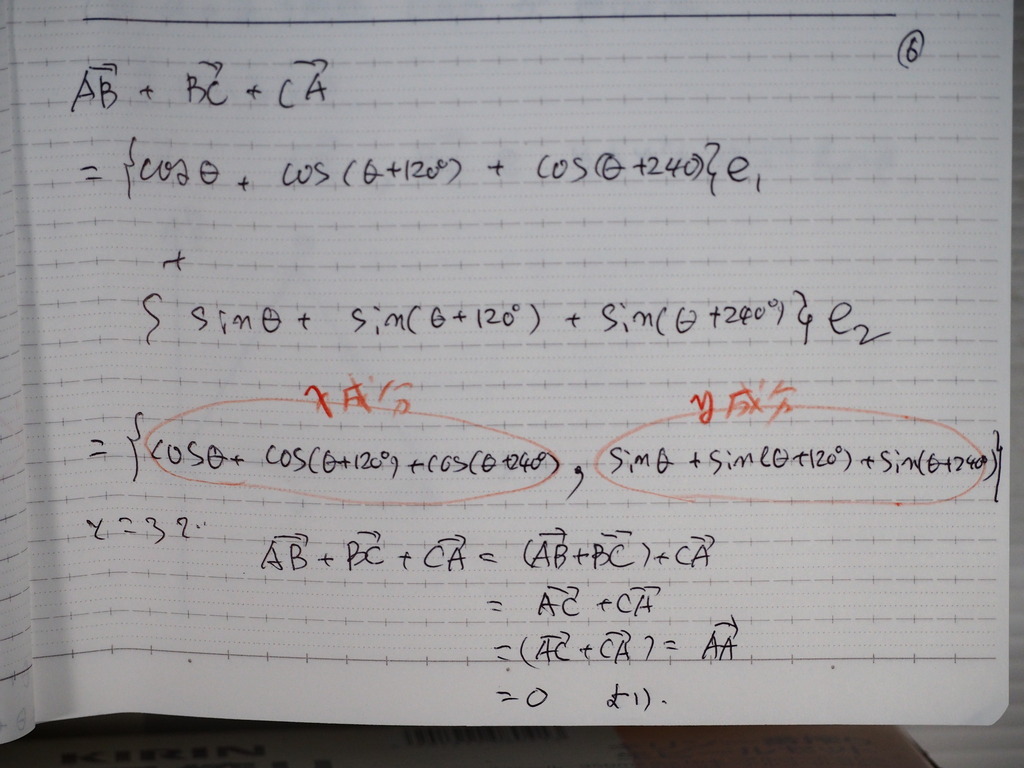 ⑥
AB→ + BC→ + CA→
= {cosθ + cos(θ+120°) + cos(θ+240)}e₁
+
{ sinθ + sin(θ+120°) + sin(θ+240°)}e₂
x成分 y成分
= {cosθ+ cos(θ+120°)+cos(θ+240°), sinθ+sin(θ+120°)+sin(θ+240°)}
ところで..
AB→+BC→+CA→ = (AB→+BC→)+CA→
= AC→+CA→
=(AC→+CA→)= AA→
=0 より.
KIRIN